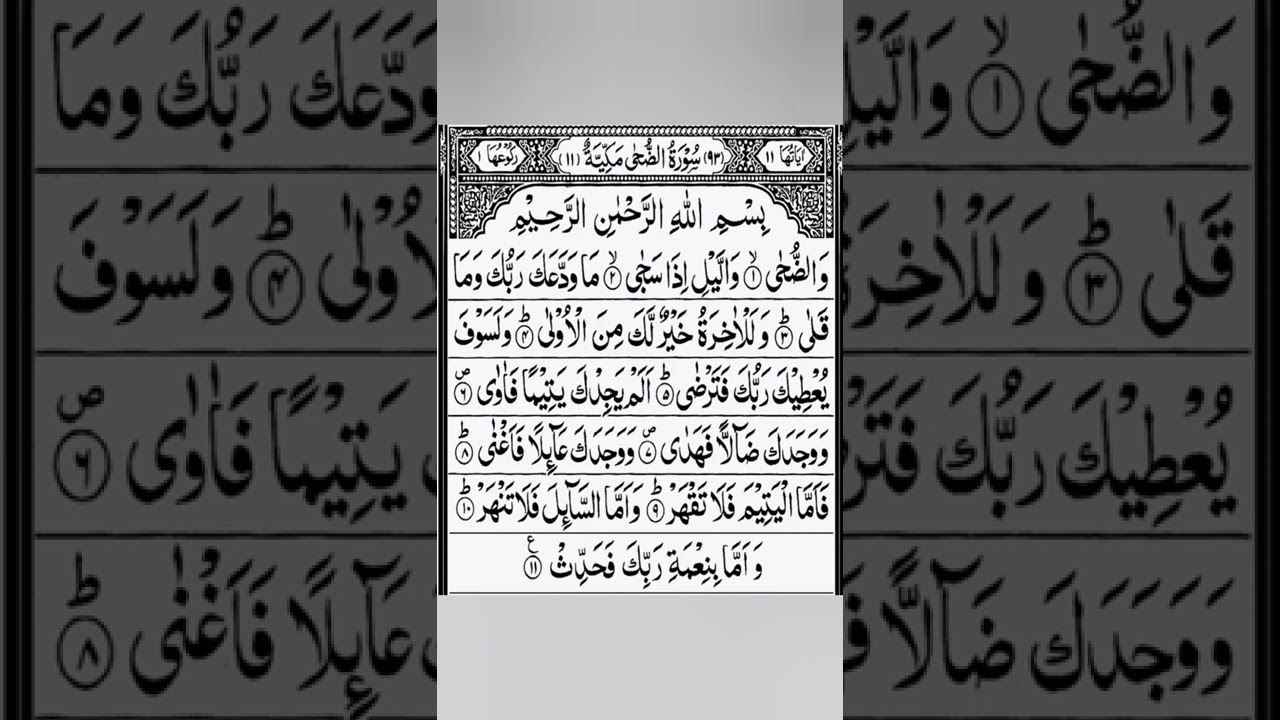 اٰیَاتُهَا ١١ (٩٣) سُوْرَةُ الضُّحٰی مَكِّیَّةٌ (١١) رُكُوْعُهَا ١
بِسْمِ اللّٰهِ الرَّحْمٰنِ الرَّحِیْمِ
وَالضُّحٰی ۙ﴿١﴾ وَالَّیْلِ اِذَا سَجٰی ۙ﴿٢﴾ مَا وَدَّعَكَ رَبُّكَ وَمَا
قَلٰی ؕ﴿٣﴾ وَ لَلْاٰخِرَةُ خَیْرٌ لَّكَ مِنَ الْاُوْلٰی ؕ﴿۴﴾ وَلَسَوْفَ
یُعْطِیْكَ رَبُّكَ فَتَرْضٰی ؕ﴿۵﴾ اَلَمْ یَجِدْكَ یَتِیْمًا فَاٰوٰی ۪﴿۶﴾
وَ وَجَدَكَ ضَآلًّا فَهَدٰی ۪﴿٧﴾ وَ وَجَدَكَ عَآىِٕلًا فَاَغْنٰی ؕ﴿٨﴾
فَاَمَّا الْیَتِیْمَ فَلَا تَقْهَرْ ؕ﴿٩﴾ وَ اَمَّا السَّآىِٕلَ فَلَا تَنْهَرْ ؕ﴿١٠﴾
وَ اَمَّا بِنِعْمَةِ رَبِّكَ فَحَدِّثْ ﴿١١﴾ ع